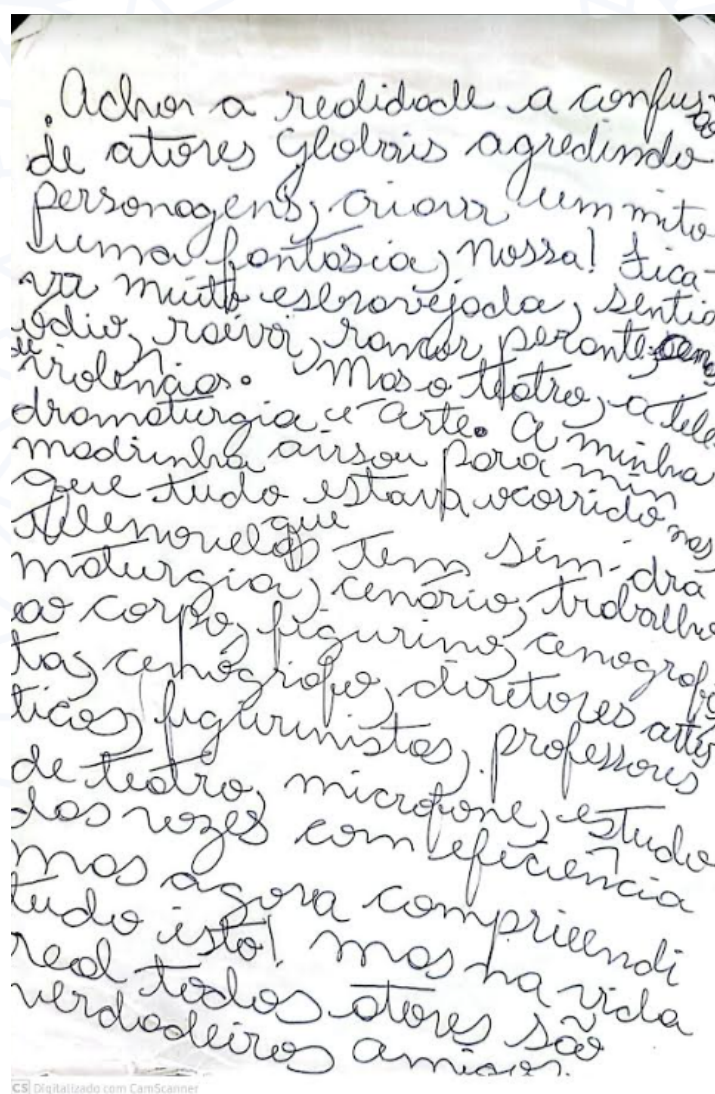 . Achar a realidade a confusão
de atores globais agredindo
personagens, criar um mito
uma fantasia, nossa! Fica-
va muito esbravejada, sentia
ódio, raiva, rancor perante
de violências. Mas o teatro, a tele
dramaturgia é arte. A minha
madrinha avisou para mim
que tudo estava ocorrido nas
telenovelas que tem sim dra
maturgia, cenário, trabalho
ao corpo, figurino, cenografis
tas, cenógrafo, diretores artís
ticos, figurinistas, professores
de teatro, microfone, estudo
das vozes com eficiência
mas agora comprieendi
tudo isto! Mas na vida
real todos atores são
verdadeiros amigos.
CS Digitalizado com CamScanner